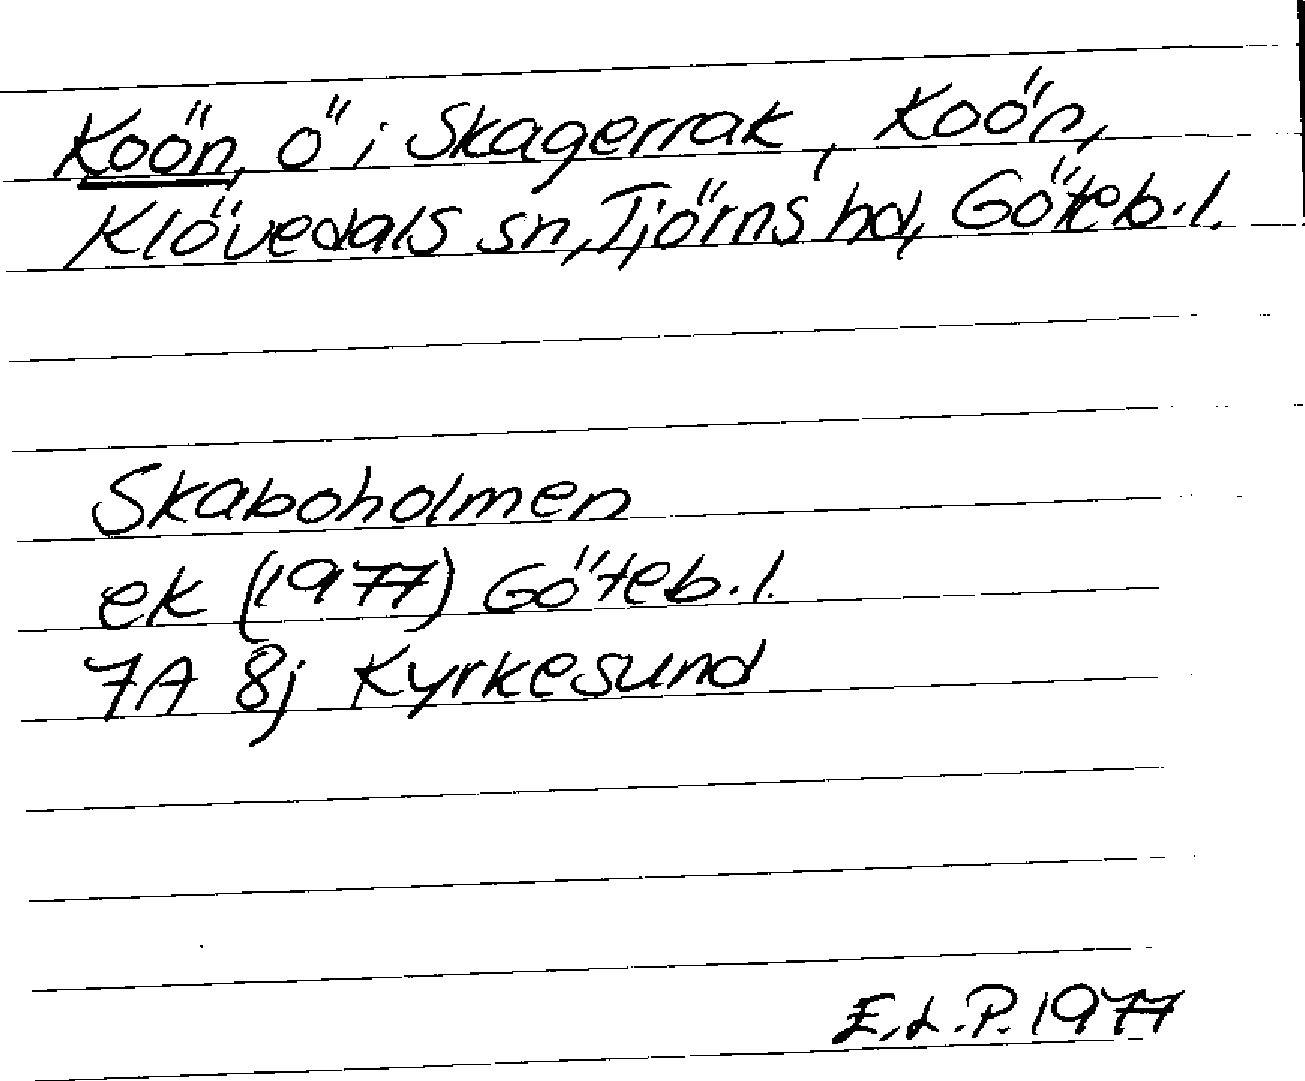 Koön, ö i Skagerrak, Koön,
Klövedals sn, Tjörns hd, Göteb.l.
Skaboholmen
ek (1977) Göteb.l.
7A 8j Kyrkesund
E.L.P. 1977